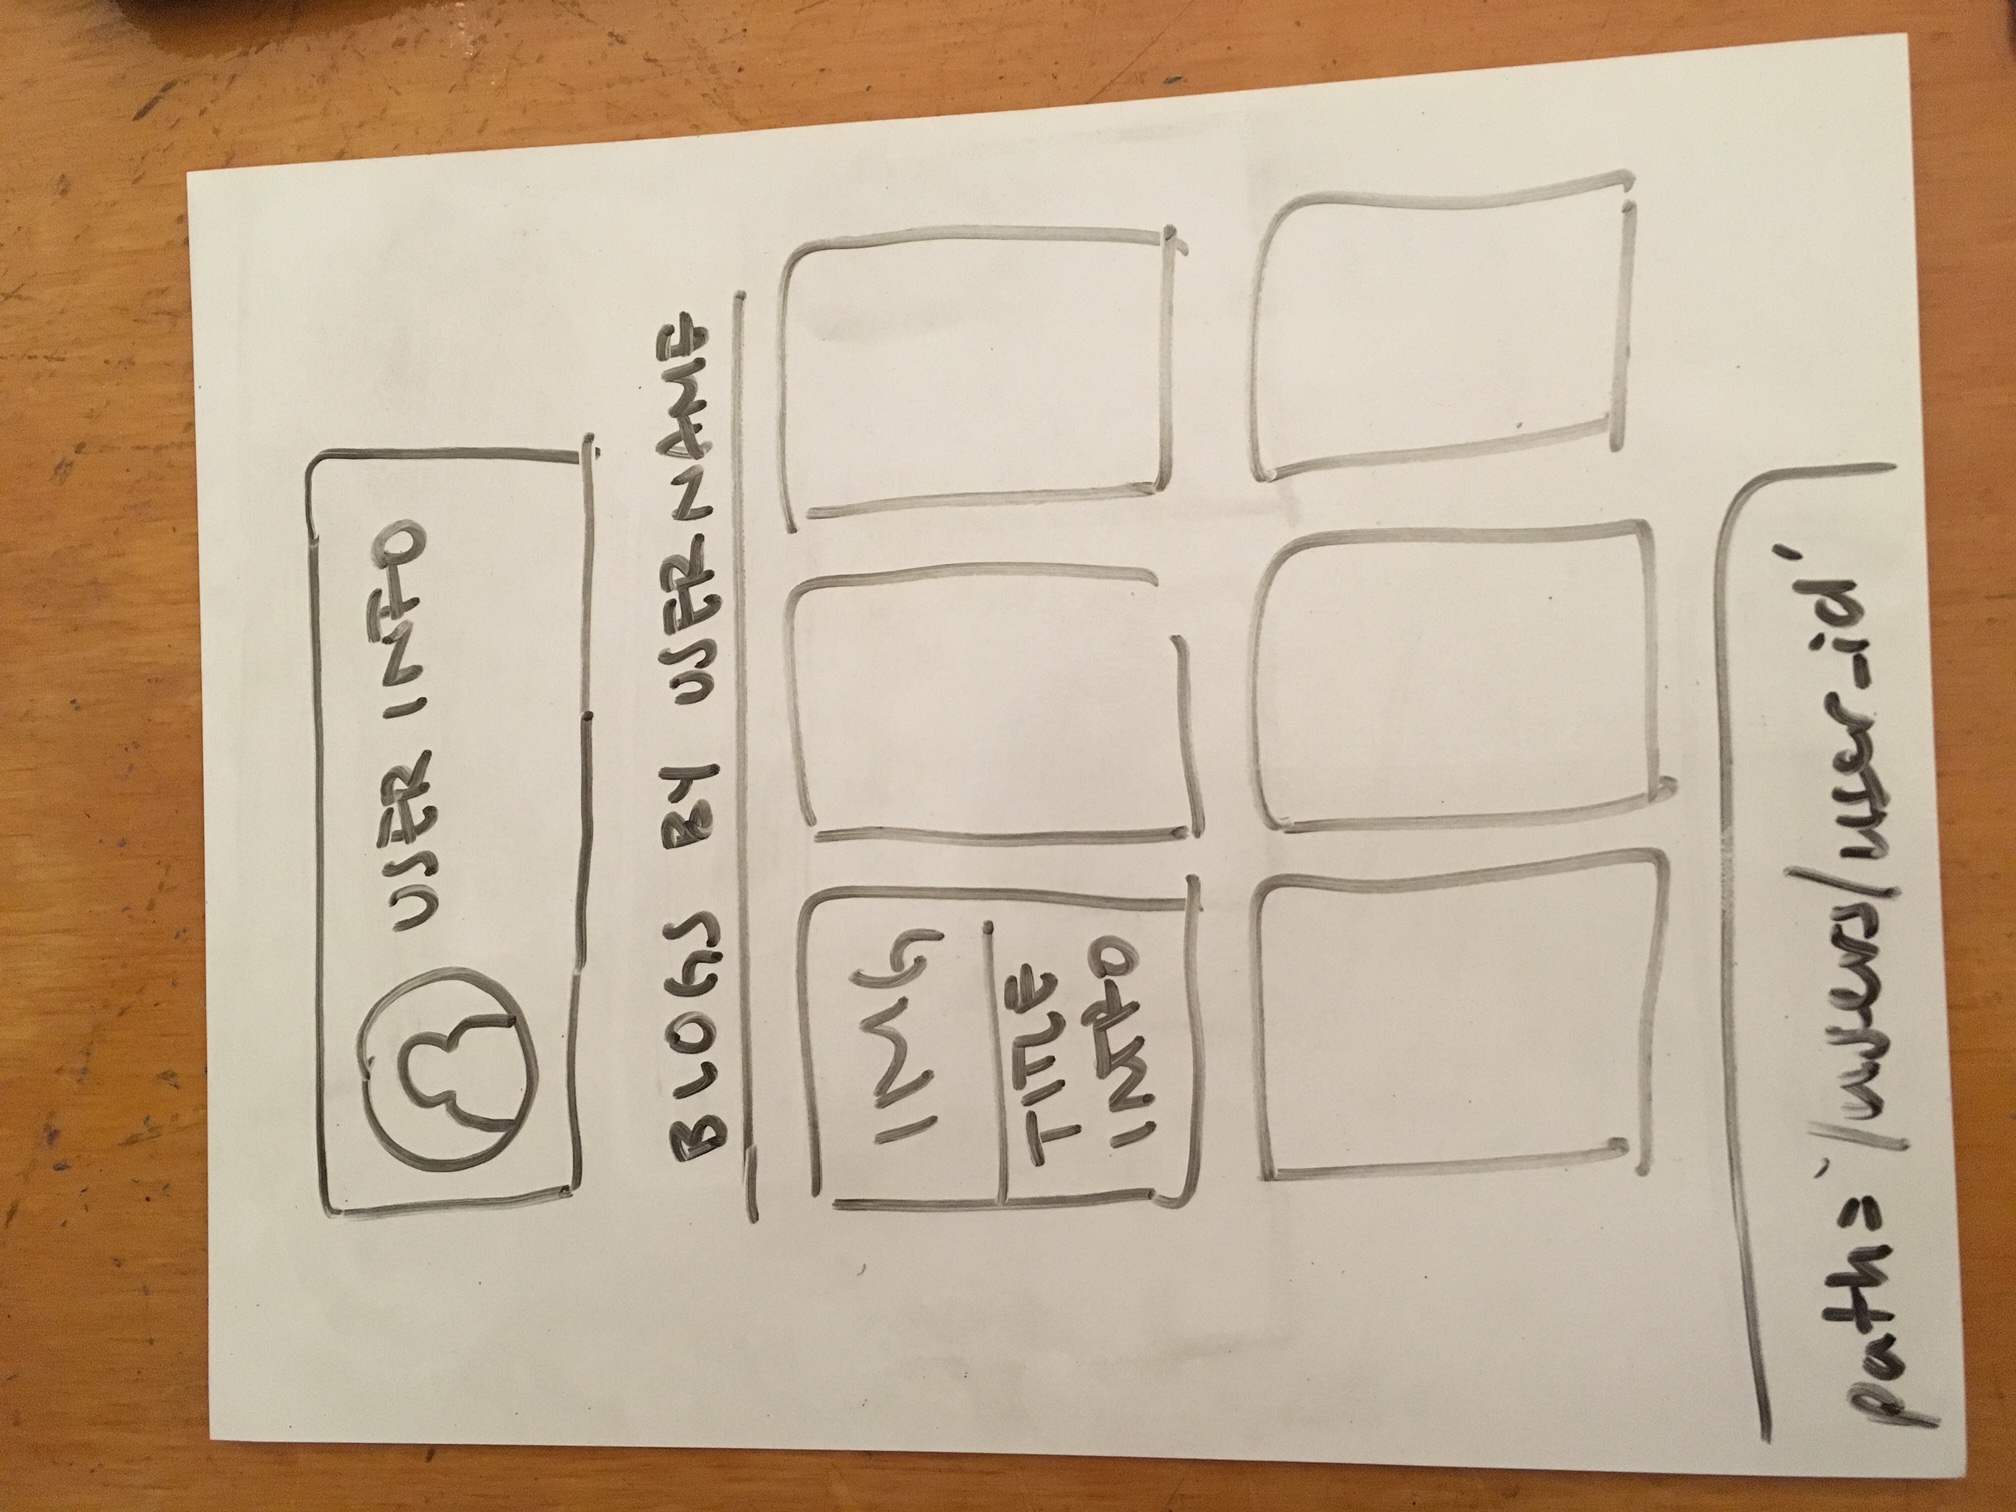 USER INFO
BLOGS BY USERNAME
IMG
TITLE
INTRO
path='/users/user_id'